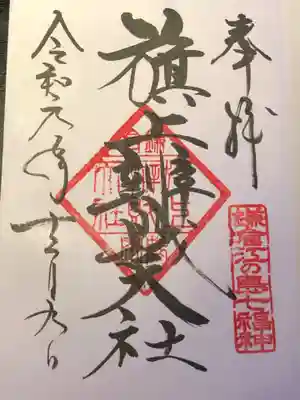 奉拝
鎌倉江の島七福神
旗上辨財天社
令和元年十二月九日